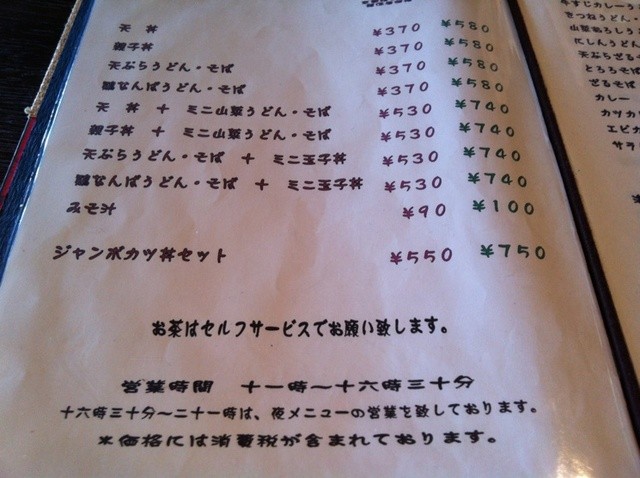 天丼 ¥370 ¥580
親子丼 ¥370 ¥580
天ぷらうどん・そば ¥370 ¥580
鶏なんばうどん・そば ¥370 ¥580
天丼 + ミニ山菜うどん・そば ¥530 ¥740
親子丼 + ミニ山菜うどん・そば ¥530 ¥740
天ぷらうどん・そば + ミニ玉子丼 ¥530 ¥740
鶏なんばうどん・そば + ミニ玉子丼 ¥530 ¥740
みそ汁 ¥90 ¥100
ジャンボカツ丼セット ¥550 ¥750
お茶はセルフサービスでお願い致します。
営業時間 十一時～十六時三十分
十六時三十分～二十一時は、夜メニューの営業を致しております。
※価格には消費税が含まれております。
牛すじカレーう
きつねうどん
山菜おろしう
にしんうどん
天ぷらざる
とろろそば
ざるそば
カレー
カツカ
エビカ
サラ